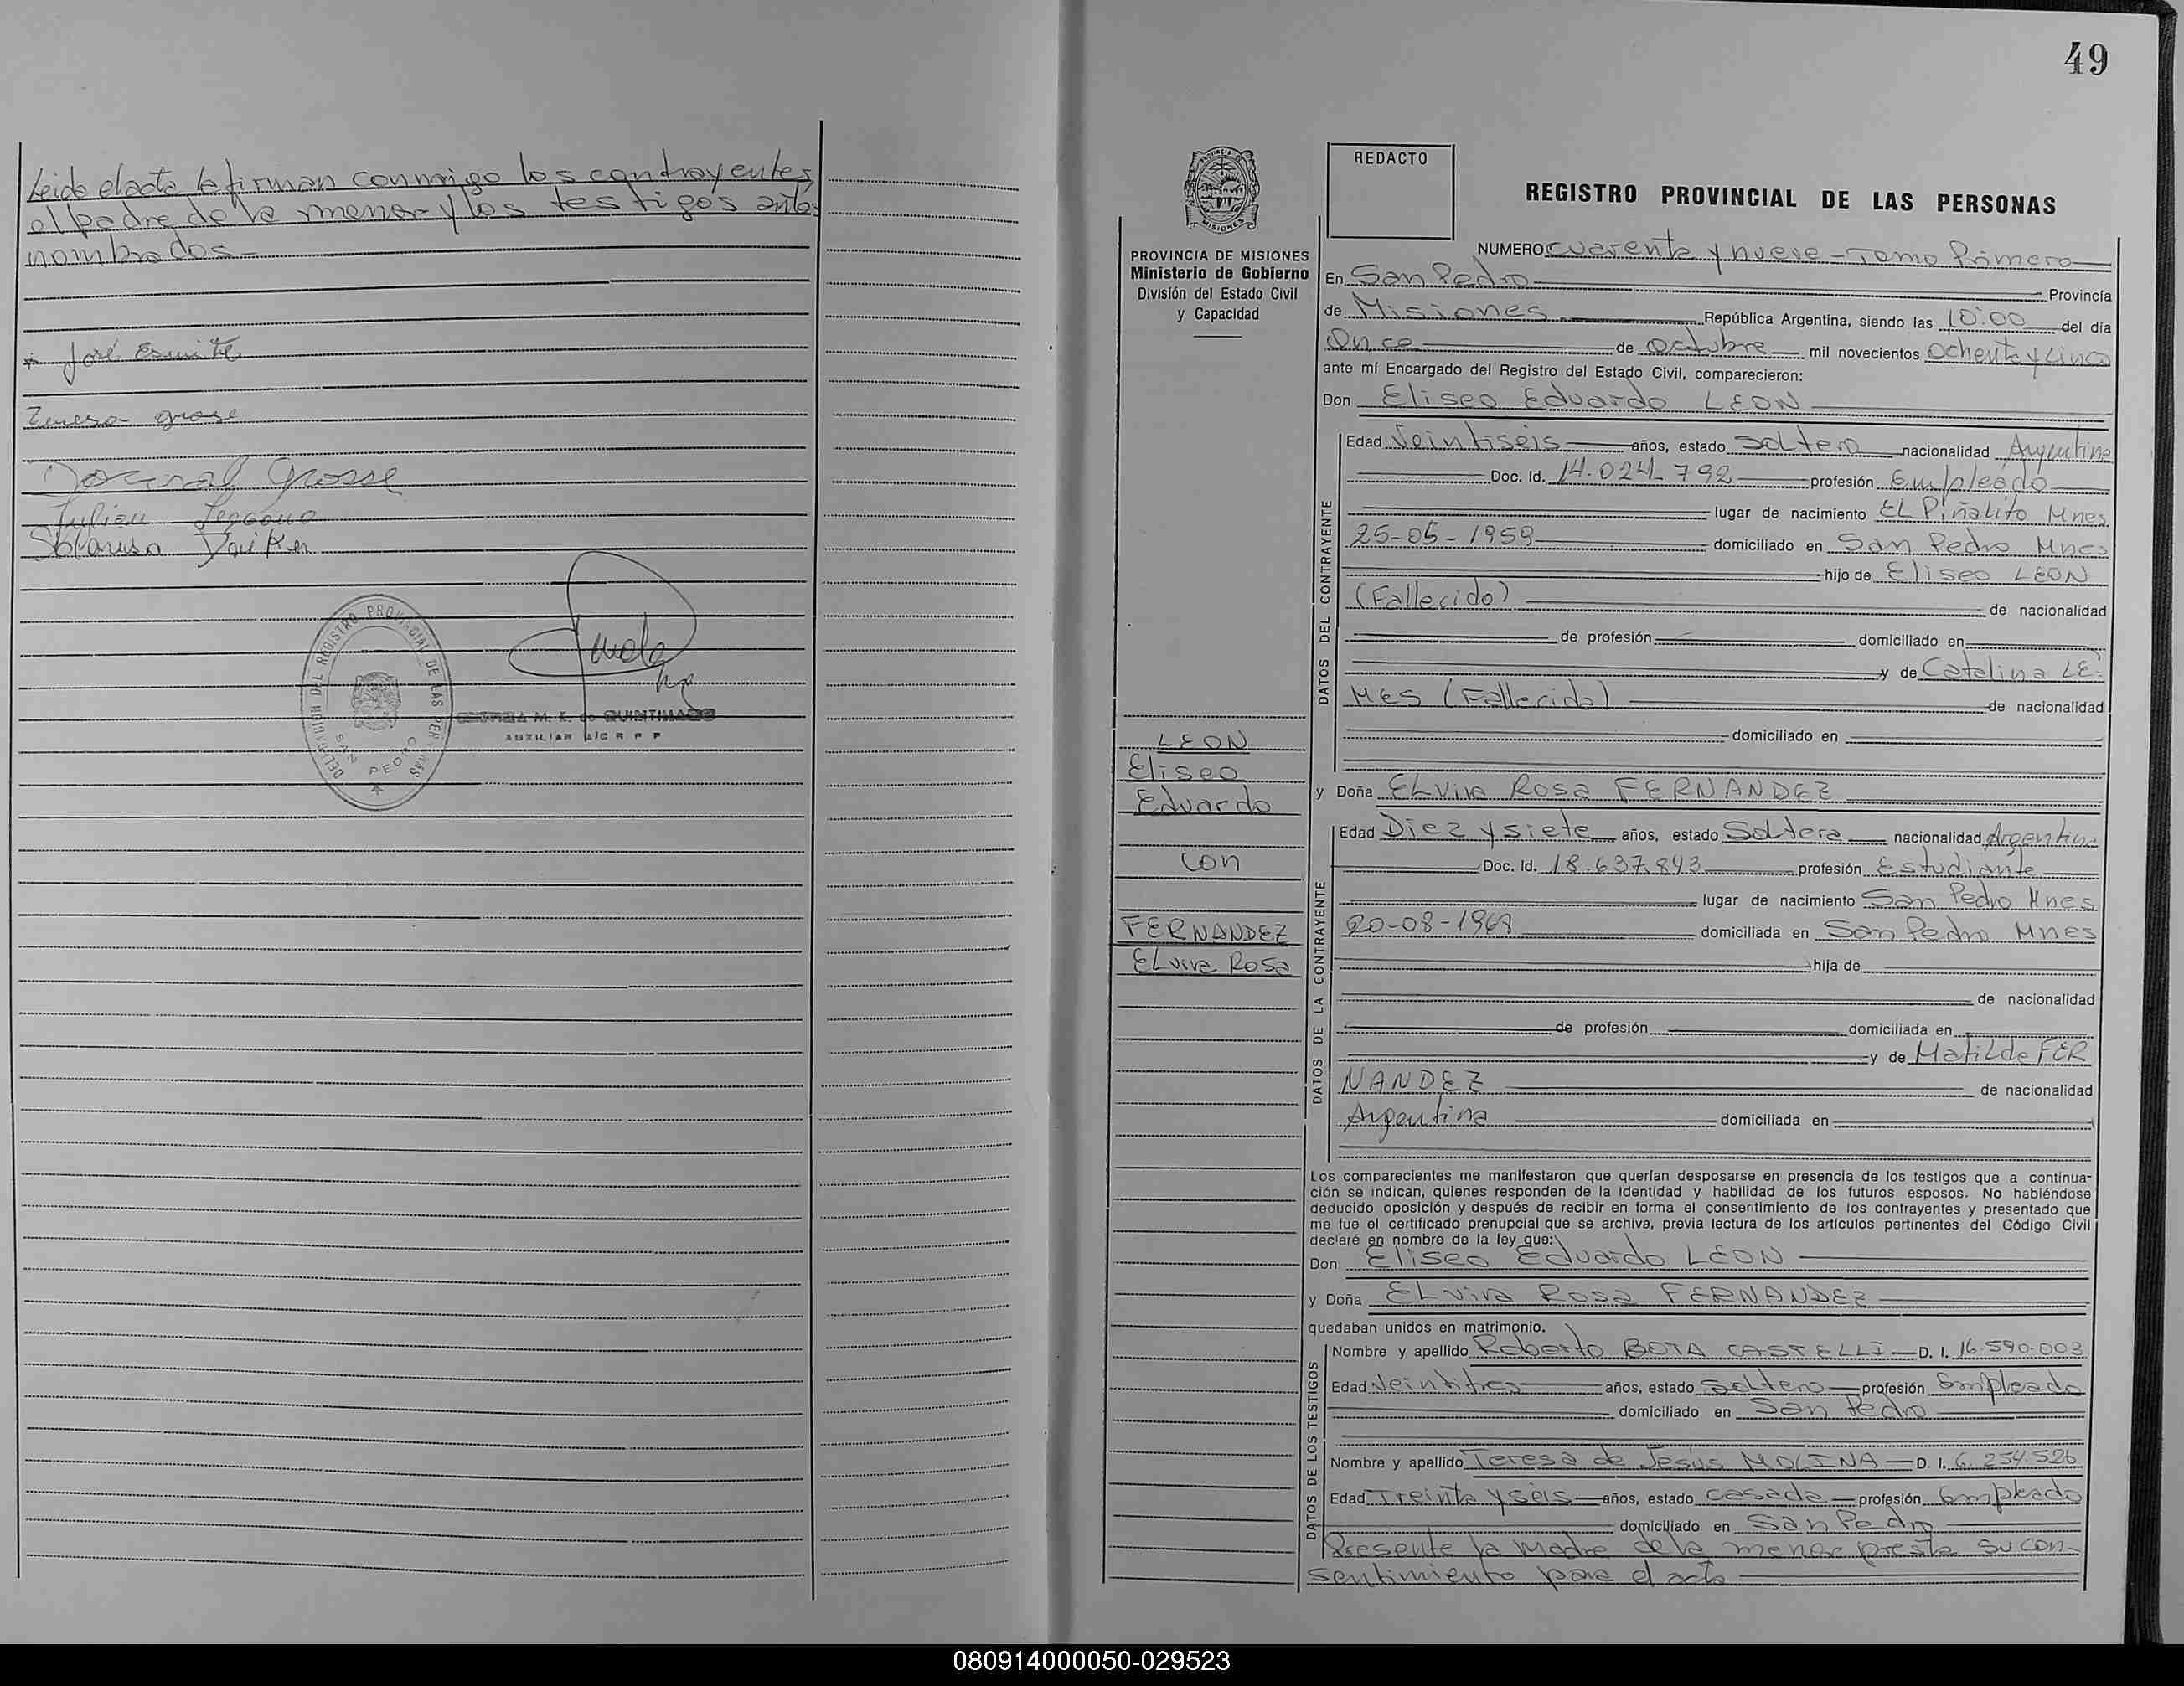 Leido el acta la firman conmigo los contrayentes,
el padre de la menor y los testigos ante
nombrados
José
Teresa grose
Grosse
DELEGACION DEL REGISTRO PROVINCIAL DE LAS PERSONAS
SAN PEDRO
M. E. de QUINTIMAGO
AUXILIAR A/C R P P
49
PROVINCIA DE MISIONES
Ministerio de Gobierno
División del Estado Civil
y Capacidad
LEON
Eliseo
Eduardo
con
FERNANDEZ
ELvira Rosa
REDACTO
REGISTRO PROVINCIAL DE LAS PERSONAS
NUMERO cuarenta y nueve - Tomo Primero
En San Pedro Provincia
de Misiones República Argentina, siendo las 10:00 del día
Once de octubre mil novecientos Ochenta y cinco
ante mí Encargado del Registro del Estado Civil, comparecieron:
Don Eliseo Eduardo LEON
DATOS DEL CONTRAYENTE
Edad Veintiseis años, estado soltero nacionalidad Argentina
Doc. Id. 14.024.792 profesión Empleado
lugar de nacimiento EL Piñalito Mnes
25-05-1959 domiciliado en San Pedro Mnes
hijo de Eliseo LEON
(Fallecido) de nacionalidad
de profesión domiciliado en
y de Catalina LE-
MES (Fallecida) de nacionalidad
domiciliado en
y Doña ELvira Rosa FERNANDEZ
DATOS DE LA CONTRAYENTE
Edad Diez y siete años, estado Soltera nacionalidad Argentina
Doc. Id. 18.637.843 profesión Estudiante
lugar de nacimiento San Pedro Mnes
20-08-1967 domiciliada en San Pedro Mnes
hija de
de nacionalidad
de profesión domiciliada en
y de Matilde FER
NANDEZ de nacionalidad
Argentina domiciliada en
Los comparecientes me manifestaron que querían desposarse en presencia de los testigos que a continua-
ción se indican, quienes responden de la identidad y habilidad de los futuros esposos. No habiéndose
deducido oposición y después de recibir en forma el consentimiento de los contrayentes y presentado que
me fue el certificado prenupcial que se archiva, previa lectura de los artículos pertinentes del Código Civil
declaré en nombre de la ley que:
Don Eliseo Eduardo LEON
y Doña ELvira Rosa FERNANDEZ
quedaban unidos en matrimonio.
DATOS DE LOS TESTIGOS
Nombre y apellido Roberto BOTA CASTELLI D. I. 16.590.003
Edad Veintitres años, estado Soltero profesión Empleado
domiciliado en San Pedro
Nombre y apellido Teresa de Jesús MOLINA D. I. 6.254.526
Edad Treinta y seis años, estado casada profesión Empleado
domiciliado en San Pedro
Presente la madre de la menor presta su con-
sentimiento para el acto
080914000050-029523